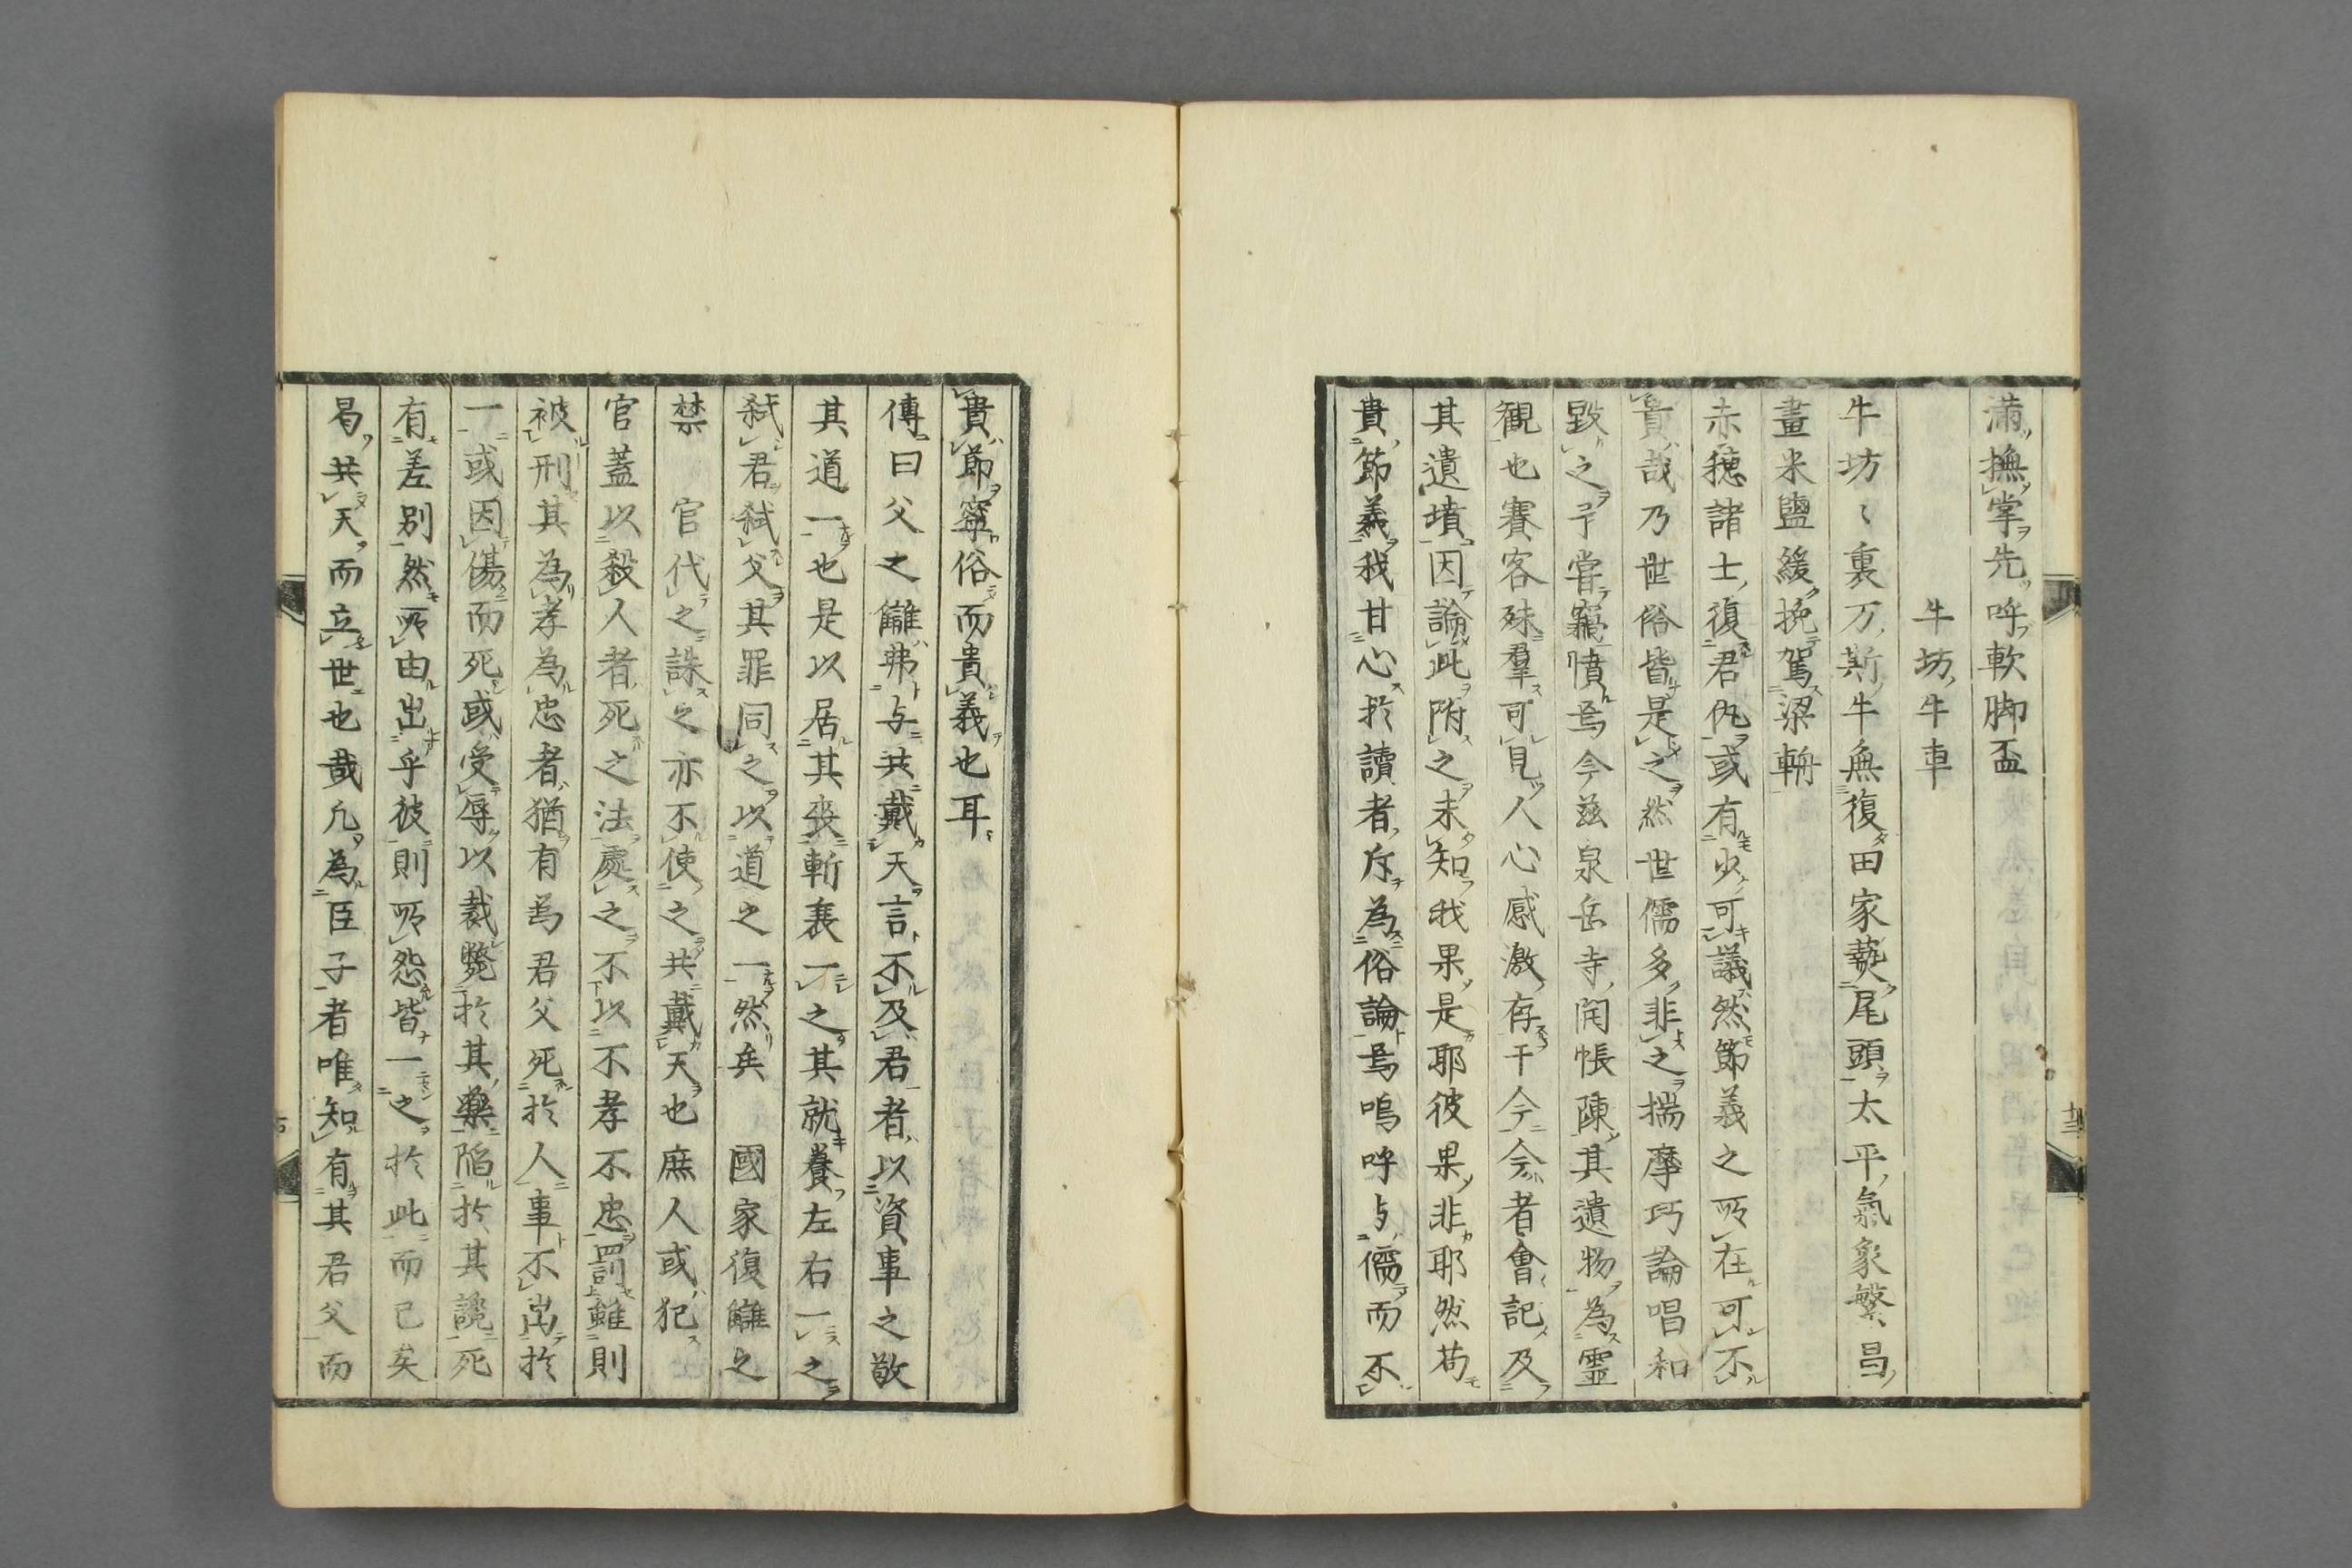 滿撫掌先呼軟脚盃
牛坊牛車
牛坊〻裏万斯牛無復田家爇尾頭太平氣象繁昌
畫米鹽緩挽駕梁輈
赤穂諸士復君仇或有少可議然節義之所在可不
貴哉乃世俗皆是之然世儒多非之揣摩巧論唱和
毀之予嘗竊憤焉今茲泉岳寺開帳陳其遺物為靈
觀也賽客殊羣可見人心感激存于今今者會記及
其遺墳因論此附之未知我果是耶彼果非耶然苟
貴節義我甘心於讀者斥為俗論焉嗚呼与儒而不
貴節寧俗而貴義也耳
傳曰父之讎弗与共戴天言不及君者以資事之敬
其道一也是以居其喪斬衰一之其就養左右一之
弑君弑父其罪同之以道之一然矣　國家復讎之
禁　官代之誅之亦不使之共戴天也庶人或犯
官蓋以殺人者死之法處之不以不孝不忠罰雖則
被刑其為孝為忠者猶有為君父死於人事不出於
一或因傷而死或受辱以裁斃於其藥陷於其讒死
有差別然所由出乎彼則所怨皆一之於此而已矣
曷共天而立世也哉凡為臣子者唯知有其君父而
十三